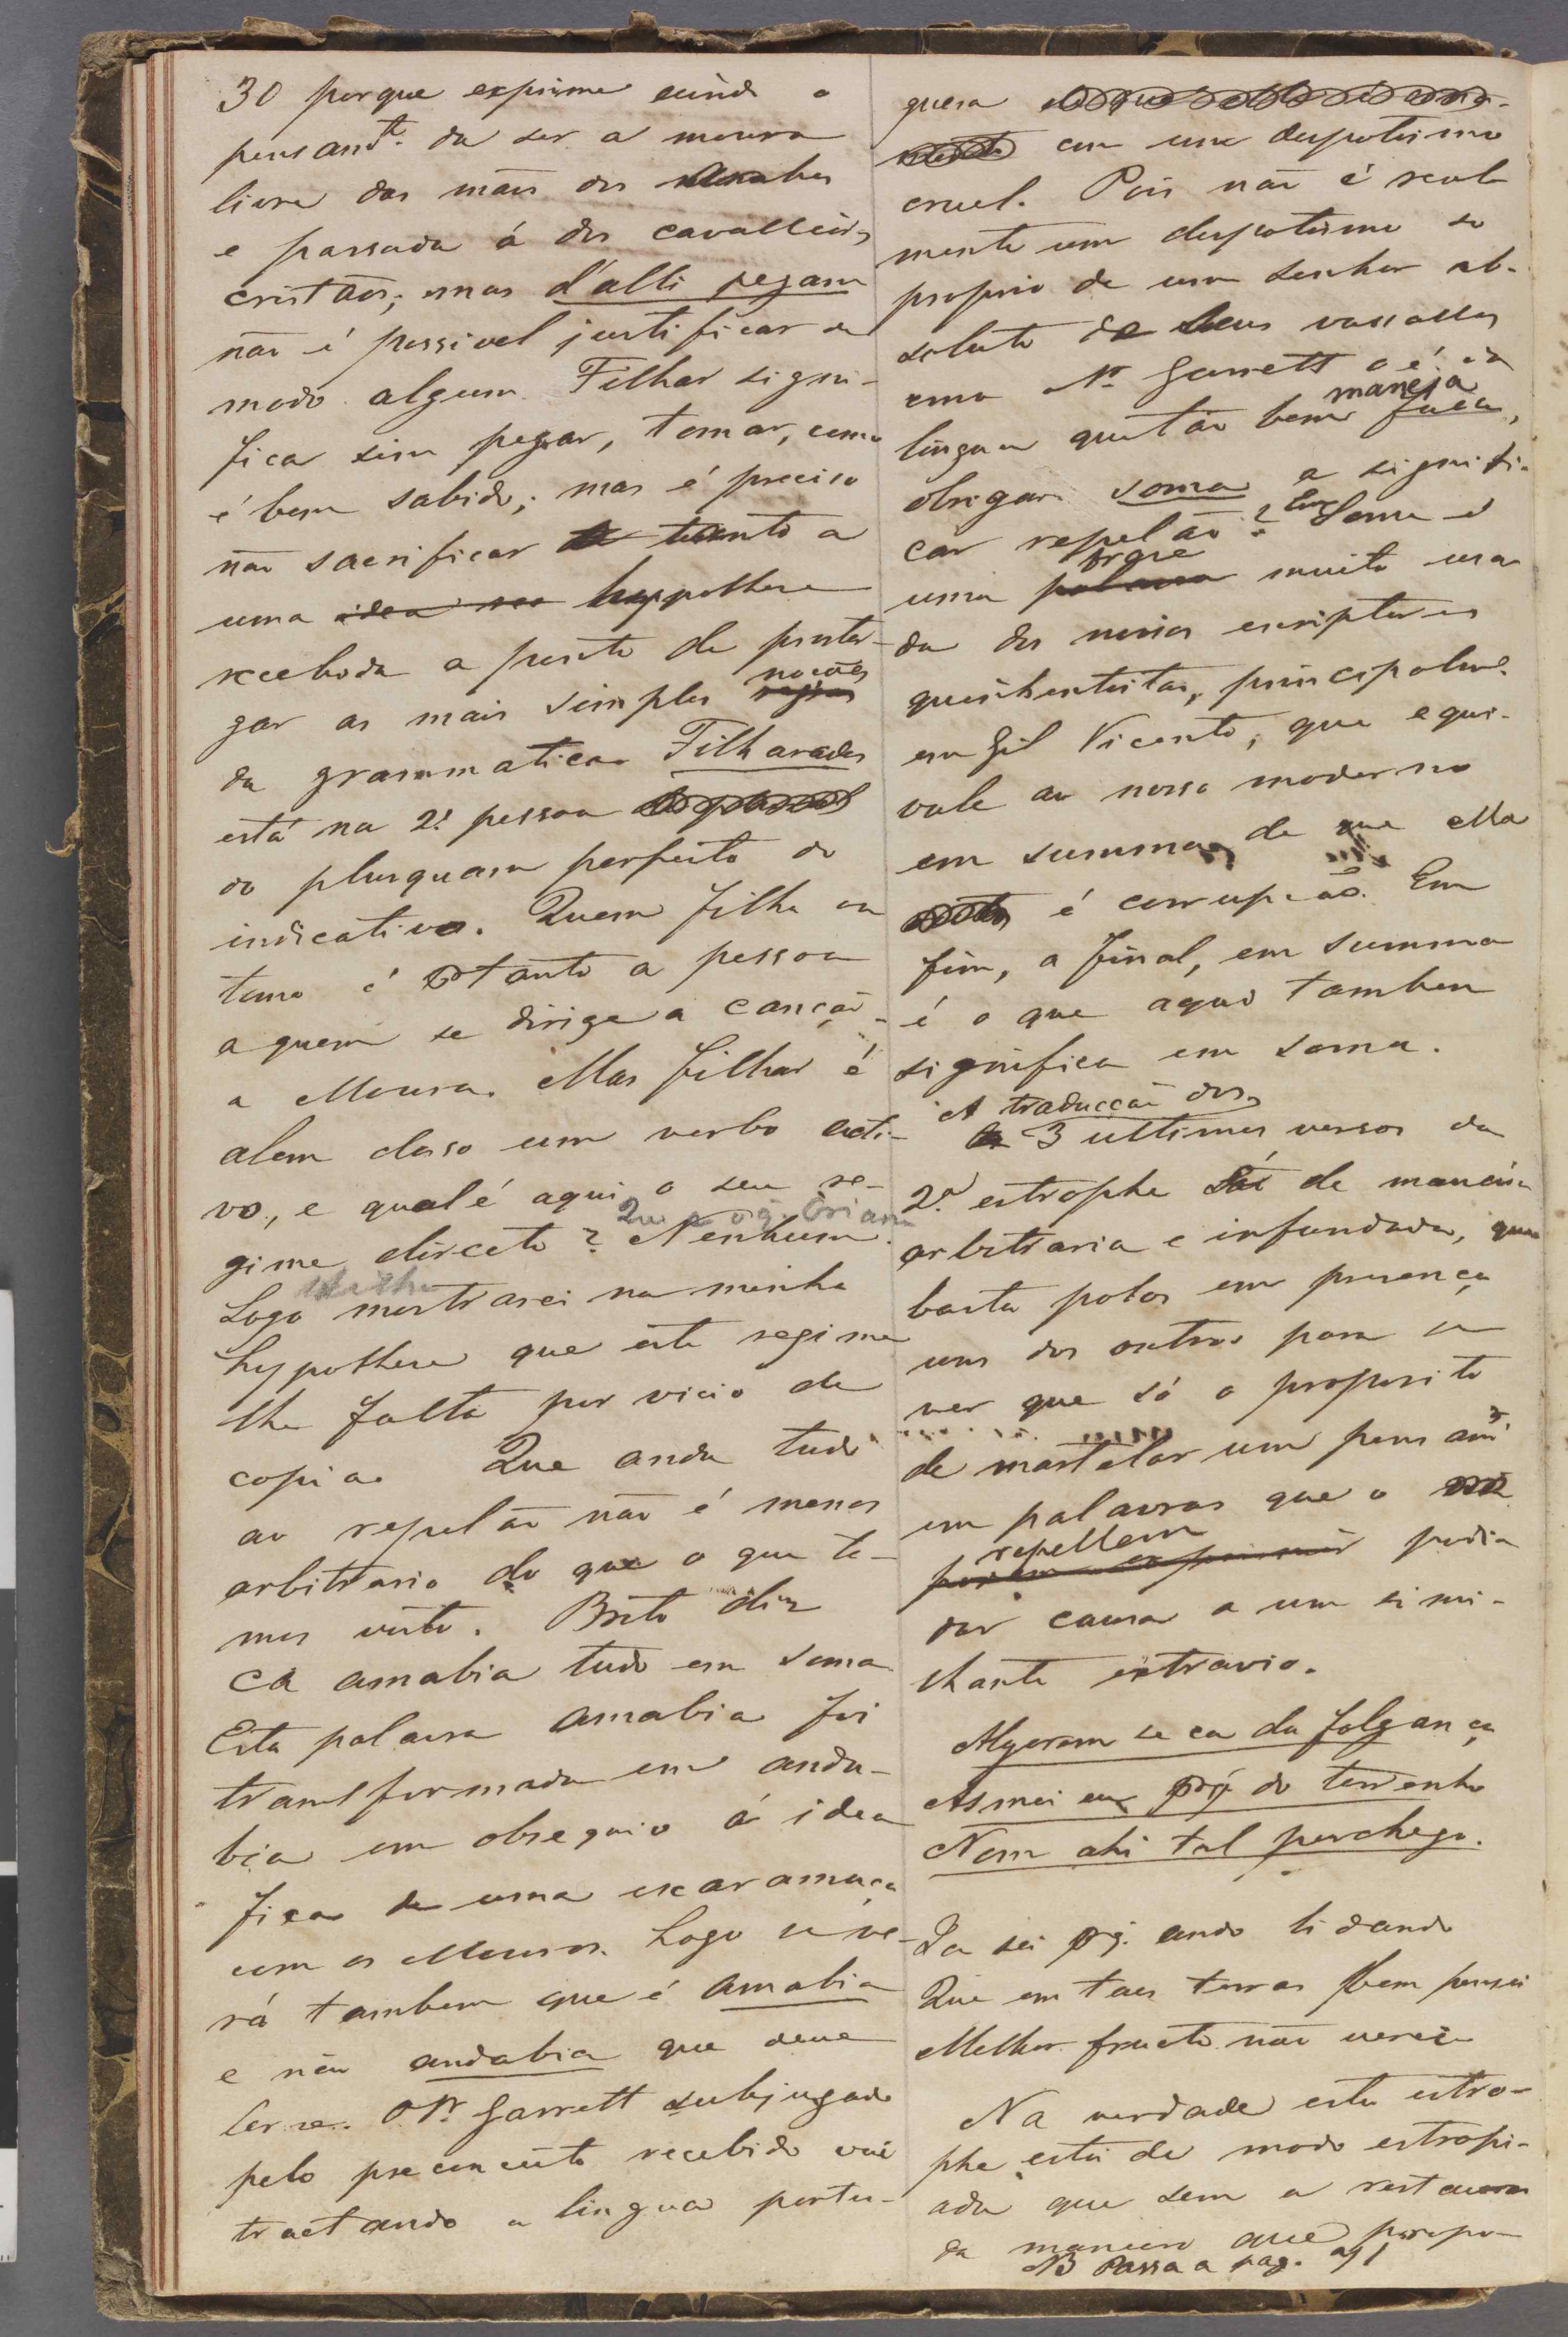 30 porque exprime ainda o
pensamt.º da ser a moura
livre das mãos dos Arabes
e passada á dos cavalleiros
cristãos; mas d'alli pegam
não é possivel justificar de
modo algum. Filhar signi-
fica sim pegar, tomar, como
é bem sabido; mas é preciso
não sacrificar tanto a
uma idea hyppothese
recebida a ponto de poster-
gar as mais simples noções
da grammatica. Filharades
está na 2ª pessoa
do plusquam perfeito do
indicativo. Quem filha ou
toma é ptanto a pessoa
a quem se dirige a canção -
a Moura. Mas filhar é
alem disso um verbo acti-
vo, e qual é aqui o seu re-
gime directo? Nenhum.
Logo mostrarei na minha
hypothese que este regime
lhe falta por vicio de
copia. Que anda tudo
ao repelão não é menos
arbitrario do que o que te-
mos visto. Brito diz
Ca amabia tudo em soma
Esta palavra amabia foi
transformada em anda-
bia em obsequio á idea
fixa de uma escaramuça
com os Mouros. Logo se ve-
rá tambem que é amabia
e não andabia que deve
ler-se. O Sr. Garrett subjugado
pelo preconceito recebido vai
tractando a lingua portu-
gueza
com um despotismo
cruel. Pois não é real-
mente um despotismo só
proprio de um senhor ab-
soluto de seus vassallos
como o Sr Garrett o é da
lingua que tão bem maneja,
obrigar soma a signifi-
car repelão? Em Soma é
uma phrase muito usa-
da dos nossos escriptores
quinhentistas, principalme.
em Gil Vicente, que equi-
vale ao nosso moderno
em summa, de que ella
é corrupção. Em
fim, a final, em summa
é o que aqui tambem
significa em soma.
A traducção dos
3 ultimos versos da
2ª estrophe é de maneira
arbitraria e infundada, que
basta pol-os em presença
uns dos outros para se
ver que só o proposito
de martelar um pensamto
em palavras que o
repellem podia
dar causa a um simi-
lhante extravio.
Algorem se ca da folgança
Asmei eu pq do terrenho
Nom ahi tal perchego.
Ja sei pq. ando lidando
Que em taes terras bem pensei
Melhor fructo não verei.
Na verdade esta estro-
phe está de modo estropi-
ada que sem a restaurar
da maneira que propo-
NB Passa a pag. 291